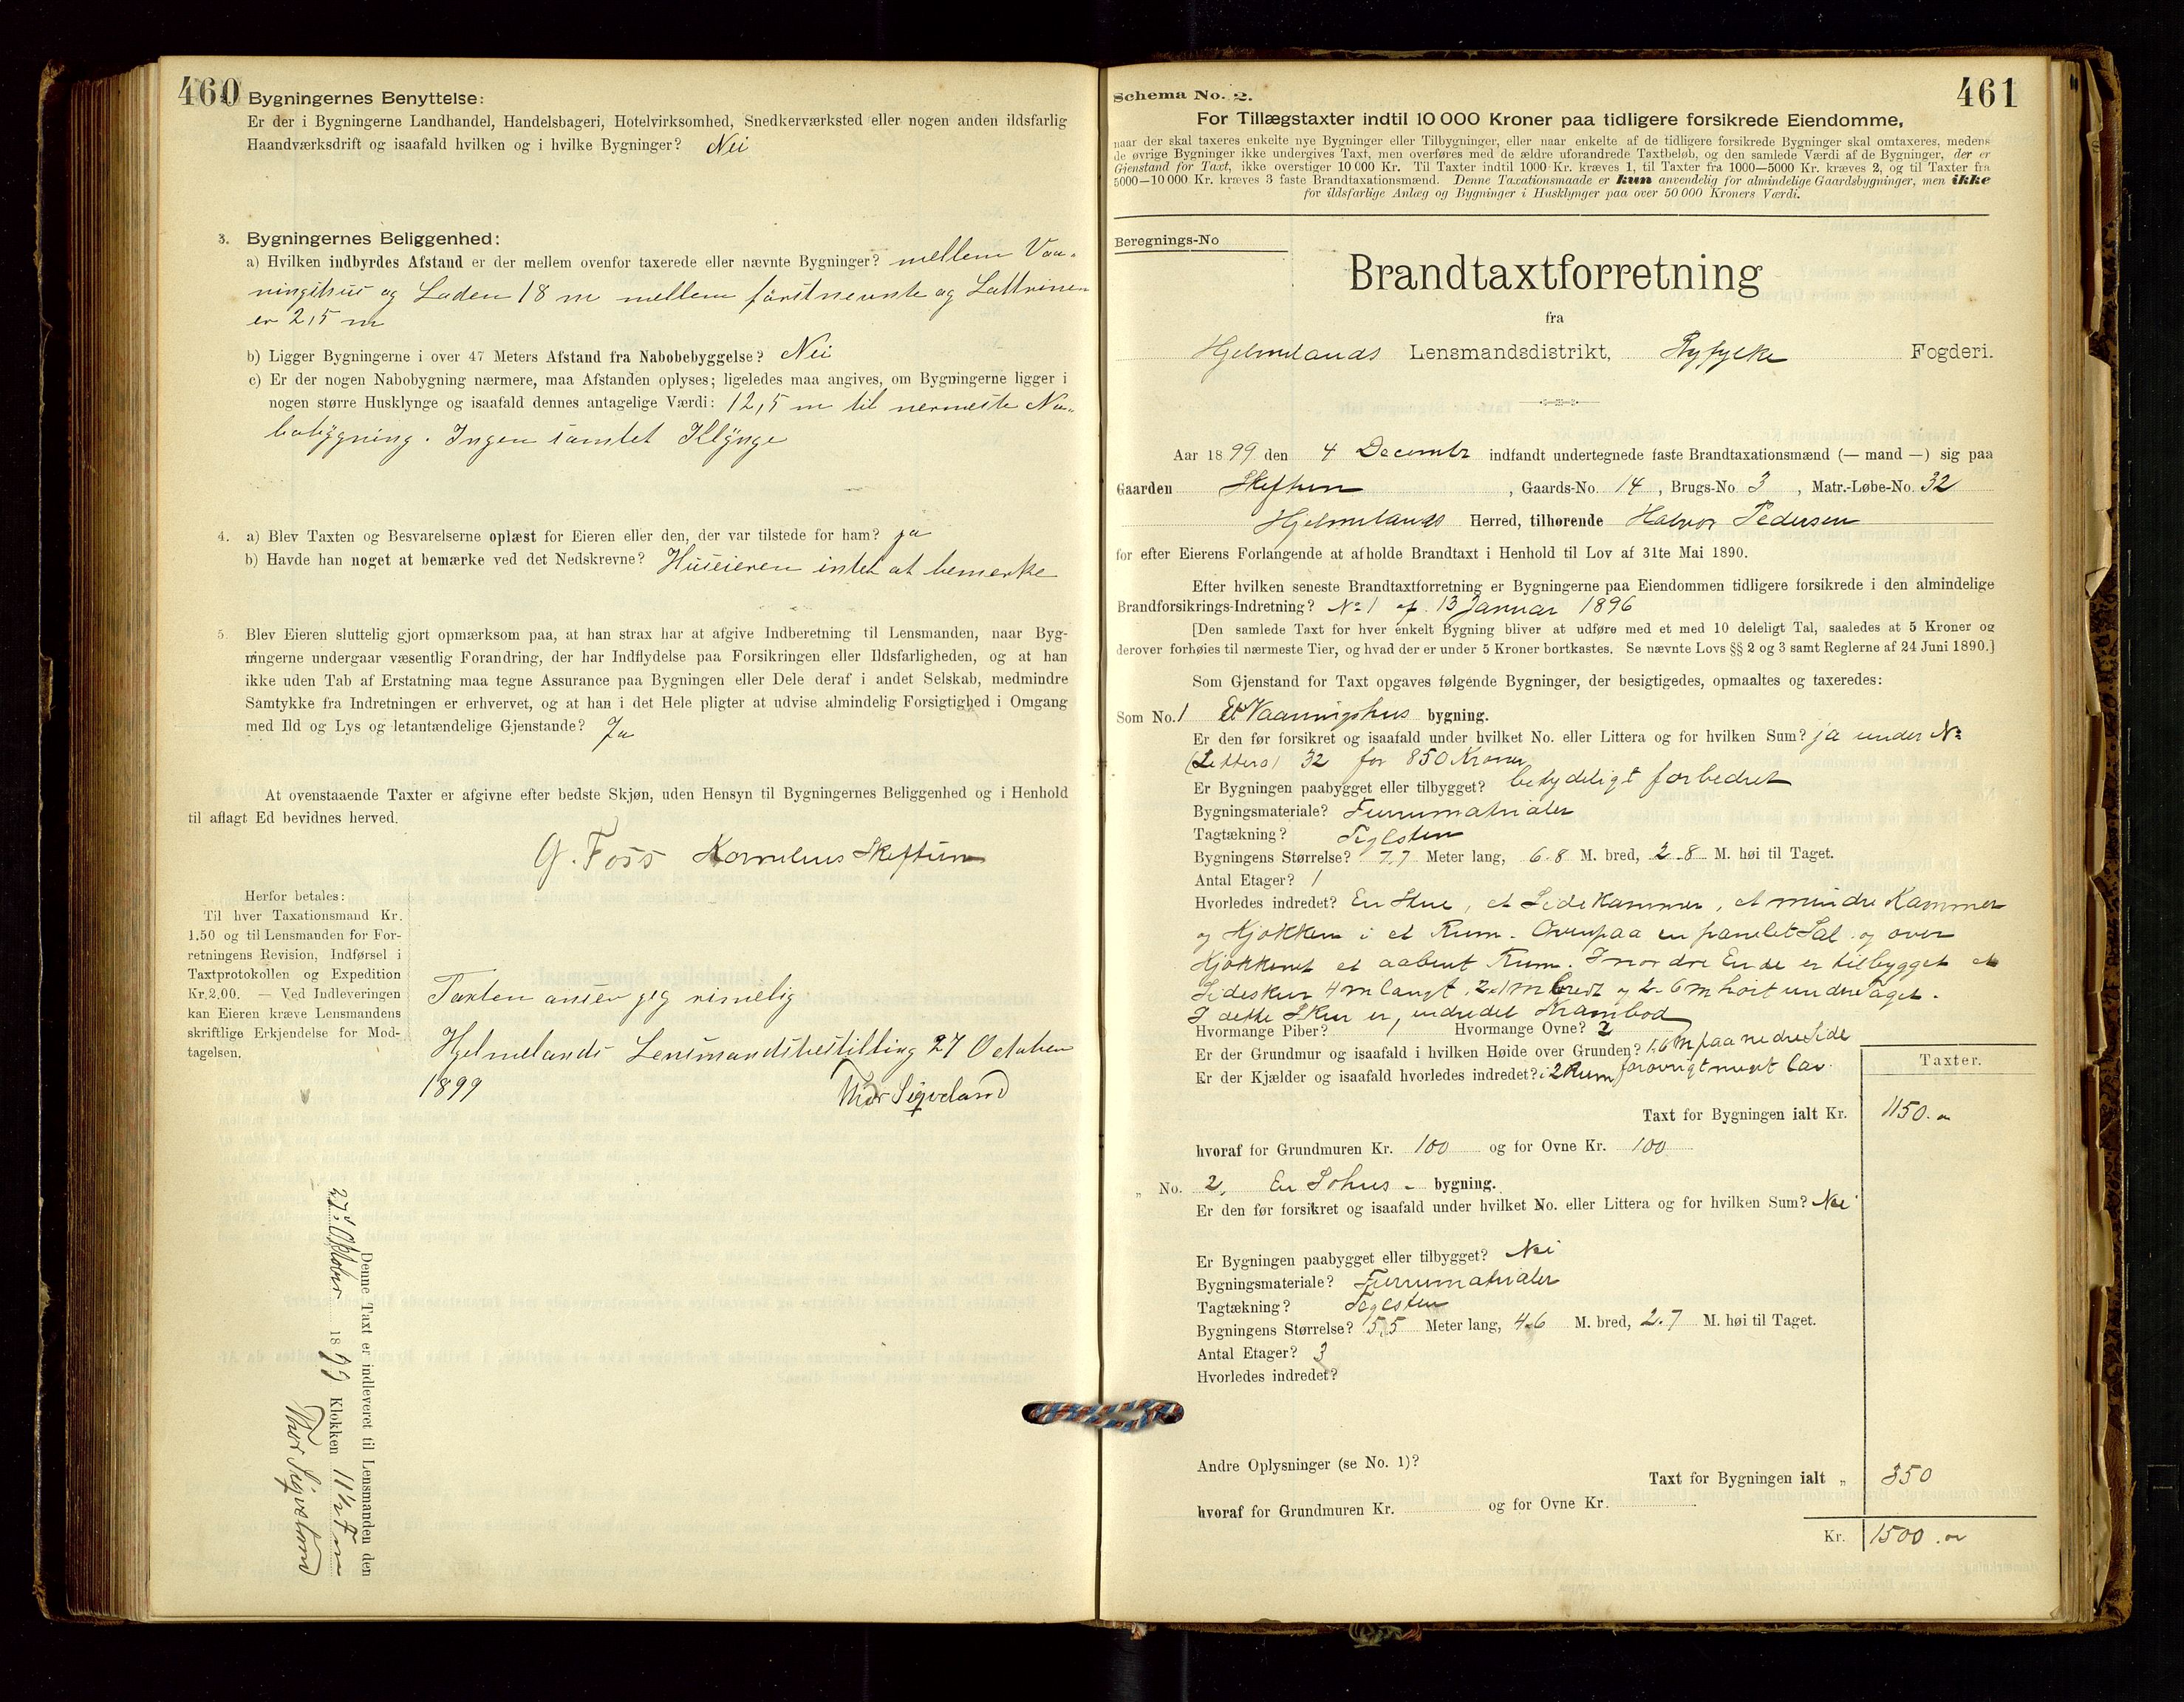 460
Bygningernes Benyttelse:
Er der i Bygningerne Landhandel, Handelsbageri, Hotelvirksomhed, Snedkerværksted eller nogen anden ildsfarlig
Haandværksdrift og isaafald hvilken og i hvilke Bygninger? Nei
3. Bygningernes Beliggenhed:
a) Hvilken indbyrdes Afstand er der mellem ovenfor taxerede eller nævnte Bygninger? mellem Vaa-
ningshus og Laden 18 m mellem förstnevnte og Lattrinen
er 2,5 m
b) Ligger Bygningerne i over 47 Meters Afstand fra Nabobebyggelse? Nei
c) Er der nogen Nabobygning nærmere, maa Afstanden oplyses; ligeledes maa angives, om Bygningerne ligger i
nogen større Husklynge og isaafald dennes antagelige Værdi: 12,5 m til nermeste Na-
bobygning. Ingen samlet Klynge
4. a) Blev Taxten og Besvarelserne oplæst for Eieren eller den, der var tilstede for ham? ja
b) Havde han noget at bemærke ved det Nedskrevne? Huseieren intet at bemerke
5. Blev Eieren sluttelig gjort opmærksom paa, at han strax har at afgive Indberetning til Lensmanden, naar Byg-
ningerne undergaar væsentlig Forandring, der har Indflydelse paa Forsikringen eller Ildsfarligheden, og at han
ikke uden Tab af Erstatning maa tegne Assurance paa Bygningen eller Dele deraf i andet Selskab, medmindre
Samtykke fra Indretningen er erhvervet, og at han i det Hele pligter at udvise almindelig Forsigtighed i Omgang
med Ild og Lys og letantændelige Gjenstande? Ja
At ovenstaaende Taxter er afgivne efter bedste Skjøn, uden Hensyn til Bygningernes Beliggenhed og i Henhold
til aflagt Ed bevidnes herved.
G. Foss Kornelius Skeftun
Herfor betales:
Til hver Taxationsmand Kr.
1.50 og til Lensmanden for For-
retningens Revision, Indførsel i
Taxtprotokollen og Expedition
Kr. 2.00. — Ved Indleveringen
kan Eieren kræve Lensmandens
skriftlige Erkjendelse for Mod-
tagelsen.
Taxten anser jeg rimelig
Hjelmelands Lensmandsbestilling 27 October
1899 Thor Sigveland
Denne Taxt er indleveret til Lensmanden den
27de Oktober 1899 Klokken 11½ Fm
Thor Sigveland
461
Schema No. 2.
For Tillægstaxter indtil 10 000 Kroner paa tidligere forsikrede Eiendomme,
naar der skal taxeres enkelte nye Bygninger eller Tilbygninger, eller naar enkelte af de tidligere forsikrede Bygninger skal omtaxeres, medens
de øvrige Bygninger ikke undergives Taxt, men overføres med de ældre uforandrede Taxtbeløb, og den samlede Værdi af de Bygninger, der er
Gjenstand for Taxt, ikke overstiger 10 000 Kr. Til Taxter indtil 1000 Kr. kræves 1, til Taxter fra 1000—5000 Kr. kræves 2, og til Taxter fra
5000—10 000 Kr. kræves 3 faste Brandtaxationsmænd. Denne Taxationsmaade er kun anvendelig for almindelige Gaardsbygninger, men ikke
for ildsfarlige Anlæg og Bygninger i Husklynger paa over 50 000 Kroners Værdi.
Beregnings-No
Brandtaxtforretning
fra
Hjelmelands Lensmandsdistrikt, Ryfylke Fogderi.
Aar 1899 den 4 Decembr indfandt undertegnede faste Brandtaxationsmænd (— mand —) sig paa
Gaarden Skeftun, Gaards-No. 14, Brugs-No. 3, Matr.-Løbe-No. 32
Hjelmelands Herred, tilhørende Halvor Pedersen
for efter Eierens Forlangende at afholde Brandtaxt i Henhold til Lov af 31te Mai 1890.
Efter hvilken seneste Brandtaxtforretning er Bygningerne paa Eiendommen tidligere forsikrede i den almindelige
Brandforsikrings-Indretning? No 1 af 13 Januar 1896
[Den samlede Taxt for hver enkelt Bygning bliver at udføre med et med 10 deleligt Tal, saaledes at 5 Kroner og
derover forhøies til nærmeste Tier, og hvad der er under 5 Kroner bortkastes. Se nævnte Lovs §§ 2 og 3 samt Reglerne af 24 Juni 1890.]
Som Gjenstand for Taxt opgaves følgende Bygninger, der besigtigedes, opmaaltes og taxeredes:
Som No. 1 Et Vaaningshus bygning.
Er den før forsikret og isaafald under hvilket No. eller Littera og for hvilken Sum? ja under No
(Littera) 32 for 850 Kroner
Er Bygningen paabygget eller tilbygget? betydeligt forbedret
Bygningsmateriale? Furrumatrialer
Tagtækning? Teglsten
Bygningens Størrelse? 7.7 Meter lang, 6.8 M. bred, 2.8 M. høi til Taget.
Antal Etager? 1
Hvorledes indredet? En Stue, et Sidekammer, et mindre Kammer
og Kjøkken i et Rum. Ovenpaa en panelet Sal og over
Kjøkkenet et aabent Rum. I nordre Ende er tilbygget et
Sideskur 4 m langt, 2.1 m bredt og 2.6 m høit under Taget.
I dette Skur er indredet Krambod
Hvormange Piber? 1 Hvormange Ovne? 2
Er der Grundmur og isaafald i hvilken Høide over Grunden? 1,6 m paa nedre Side
Er der Kjælder og isaafald hvorledes indredet? i 2 Rum forøvrigt meget lav.
Taxter.
Taxt for Bygningen ialt Kr. 1150.
hvoraf for Grundmuren Kr. 100 og for Ovne Kr. 100
„ No. 2. En Søhus - bygning.
Er den før forsikret og isaafald under hvilket No. eller Littera og for hvilken Sum? Nei
Er Bygningen paabygget eller tilbygget? Nei
Bygningsmateriale? Furrumatrialer
Tagtækning? Teglsten
Bygningens Størrelse? 5.5 Meter lang, 4.6 M. bred, 2.7 M. høi til Taget.
Antal Etager? 3
Hvorledes indredet?
Andre Oplysninger (se No. 1)?
Taxt for Bygningen ialt „ 350
hvoraf for Grundmuren Kr. og for Ovne Kr.
Kr. 1500.